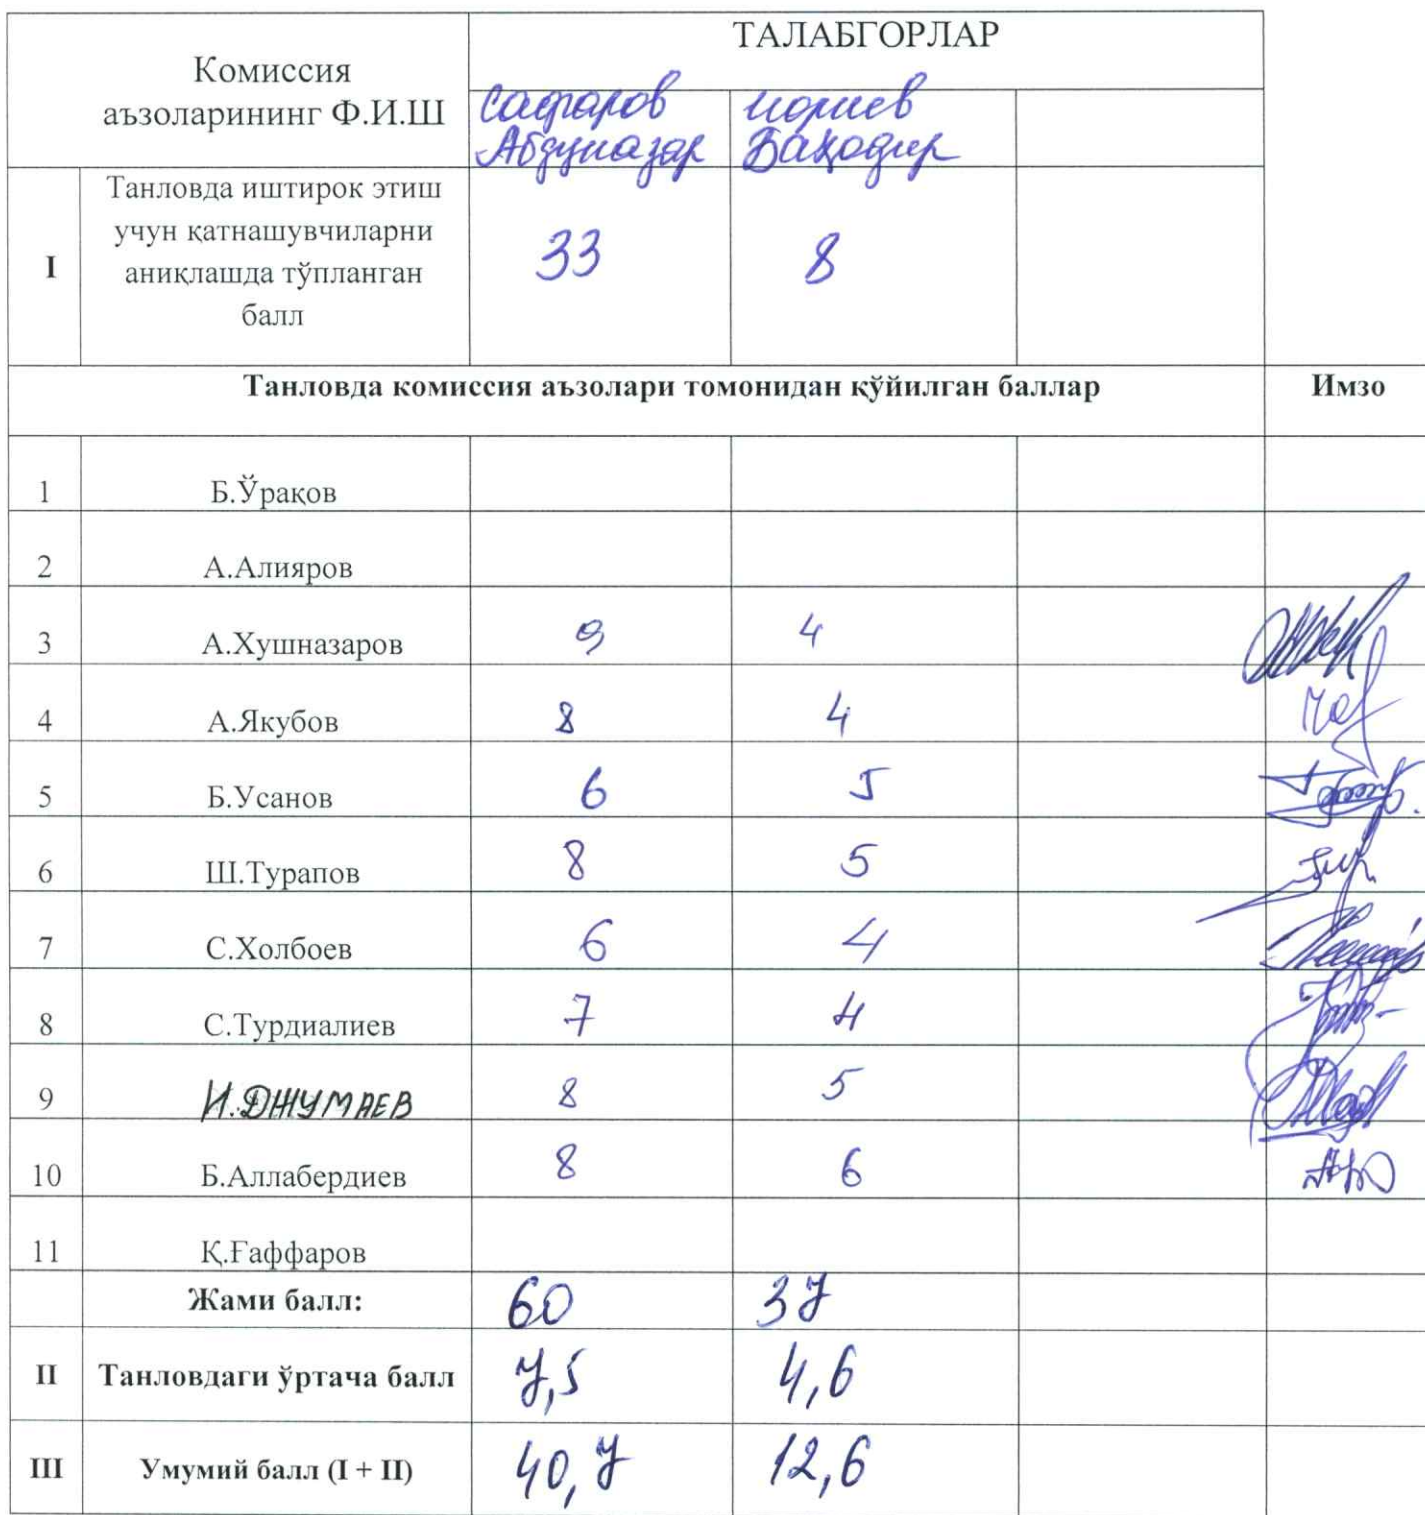 Комиссия
аъзоларининг Ф.И.Ш
ТАЛАБГОРЛАР
Сафаров
Абдуназар
Нориев
Баҳодир
I
Танловда иштирок этиш
учун қатнашувчиларни
аниқлашда тўпланган
балл
33
8
Танловда комиссия аъзолари томонидан қўйилган баллар
Имзо
1 Б.Ўрақов
2 А.Алияров
3 А.Хушназаров 9 4
4 А.Якубов 8 4
5 Б.Усанов 6 5
6 Ш.Турапов 8 5
7 С.Холбоев 6 4
8 С.Турдиалиев 7 4
9 И.ДЖУМАЕВ 8 5
10 Б.Аллабердиев 8 6
11 Қ.Ғаффаров
Жами балл: 60 37
II Танловдаги ўртача балл 7,5 4,6
III Умумий балл (I + II) 40,7 12,6